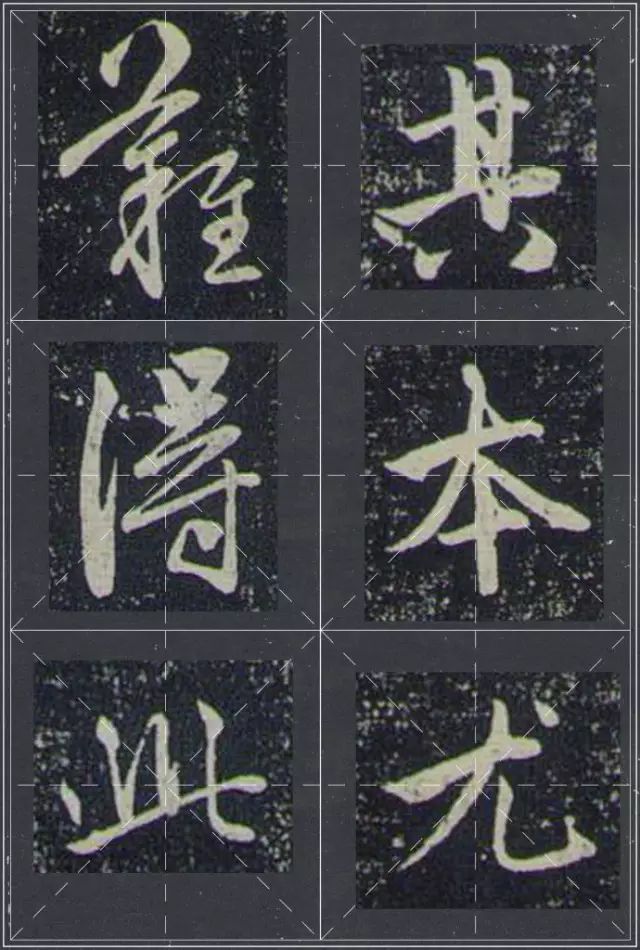 其本尤
難得此